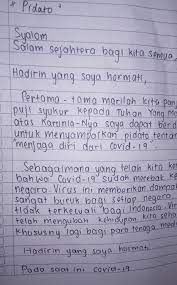 * Pidato *
Syalom
Salam sejahtera bagi kita semua,
Hadirin yang saya hormati,
Pertama-tama marilah kita pan
puji syukur kepada Tuhan Yang M
atas karunia-Nya saya dapat berd
untuk menyampaikan pidato tentan
"menjaga diri dari Covid-19"
Sebagaimana yang telah kita ket
bahwa Covid-19 sudah merebak ke
negara. Virus ini memberikan dampak
sangat buruk bagi setiap negara
tidak terkecuali bagi Indonesia. Vir
telah mengubah kehidupan kita seha
Khususnya lagi bagi para tenaga med
Hadirin yang saya hormati
Pada saat ini covid-19